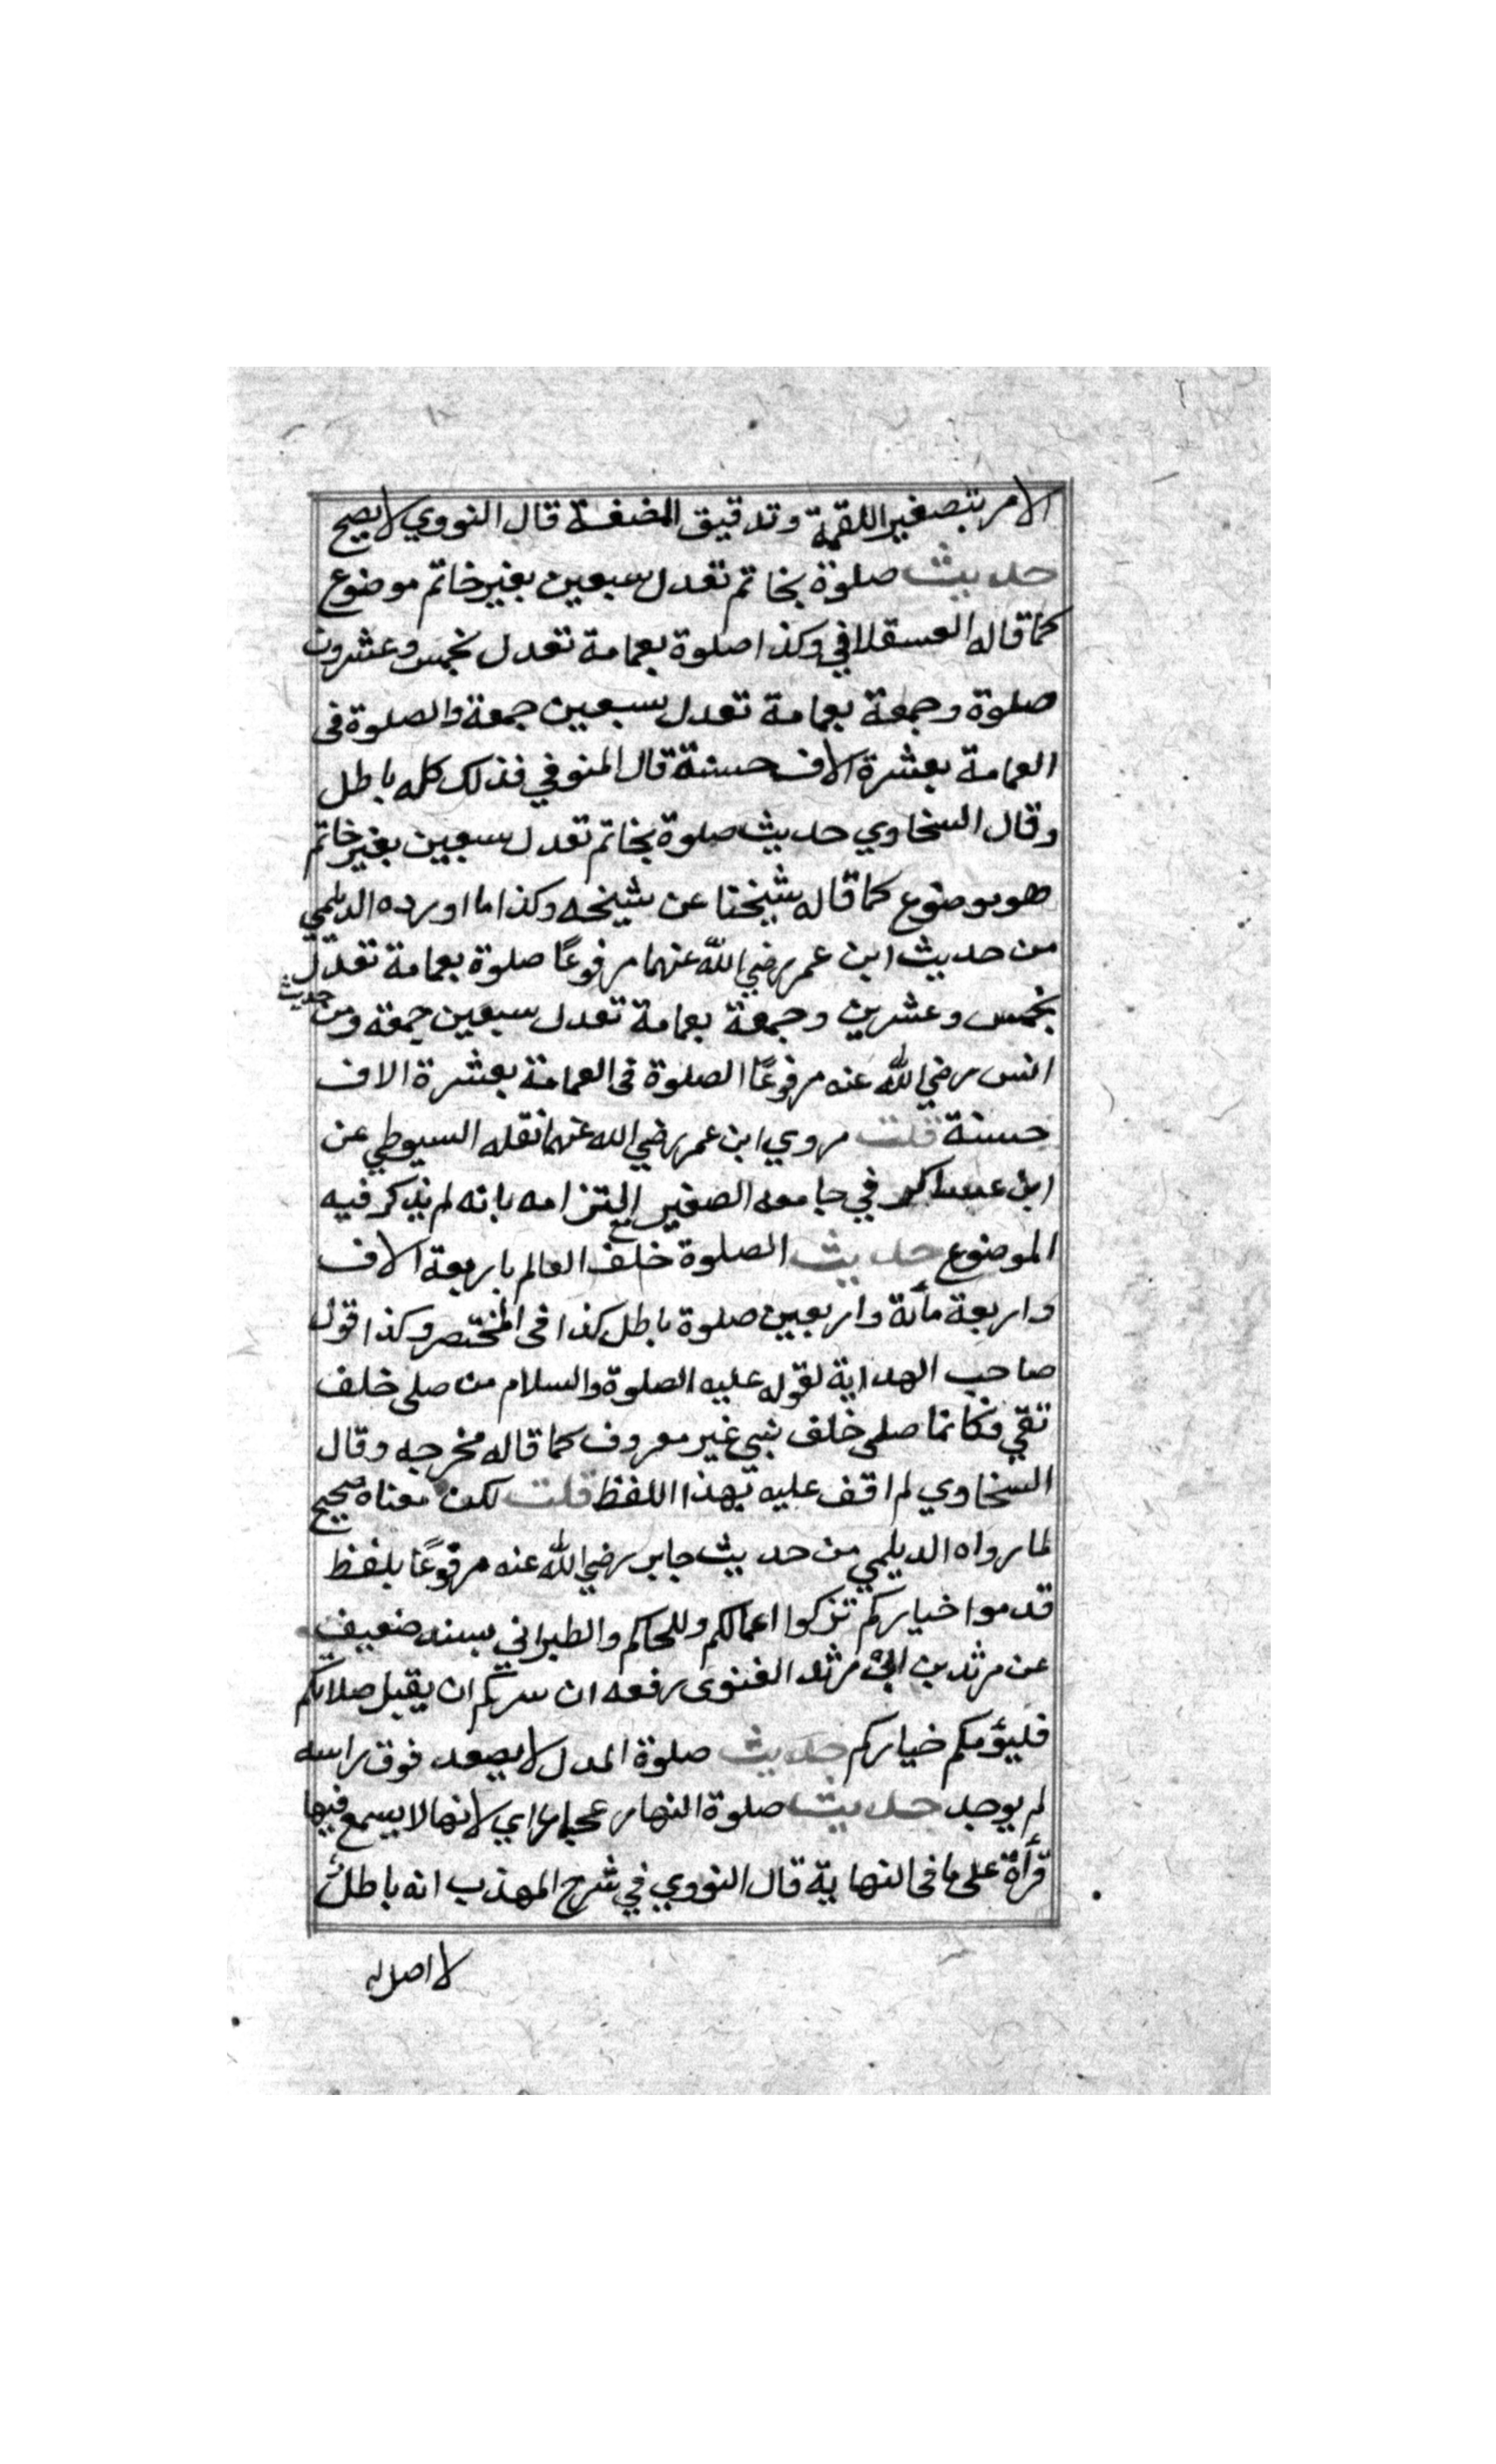 الامر بتصغير اللقمة وتدقيق المضغة قال النووي لا يصح
حديث صلوة بخاتم تعدل سبعين بغير خاتم موضوع
كما قاله العسقلاني وكذا صلوة بعمامة تعدل بخمس وعشرون
صلوة وجمعة بعمامة تعدل سبعين جمعة والصلوة فى
العمامة بعشرة الاف حسنة قال المنوفي فذلك كله باطل
وقال السخاوي حديث صلوة بخاتم تعدل سبعين بغير خاتم
هو موضوع كما قاله شيخنا عن شيخه وكذا ما اورده الديلمي
من حديث ابن عمر رضي الله عنهما مرفوعًا صلوة بعمامة تعدل
بخمس وعشرين وجمعة بعمامة تعدل سبعين جمعة ومن حديث
انس رضي الله عنه مرفوعًا الصلوة فى العمامة بعشرة الاف
حسنة قلت مروي ابن عمر رضي الله عنهما نقله السيوطي عن
ابن عساكر في جامعه الصغير مع التزامه بانه لم يذكر فيه
الموضوع حديث الصلوة خلف العالم باربعة الاف
واربعة مأئة واربعين صلوة باطل كذا فى المختصر وكذا قول
صاحب الهداية لقوله عليه الصلوة والسلام من صلى خلف
تقي فكانما صلى خلف نبي غير معروف كما قاله مخرجه وقال
السخاوي لم اقف عليه بهذا اللفظ قلت لكن معناه صحيح
لما رواه الديلمي من حديث جابر رضي الله عنه مرفوعًا بلفظ
قدموا خياركم تزكوا اعمالكم وللحاكم والطبراني بسند ضعيف
عن مرثد بن ابى مرثد الغنوى رفعه ان سركم ان يقبل صلاتكم
فليؤمكم خياركم حديث صلوة المدل لا يصعد فوق راسه
لم يوجد حديث صلوة النهار عجماء اي لانها لا يسمع فيها
قرأة على ما فى النهاية قال النووي في شرح المهذب انه باطل
لا اصل له